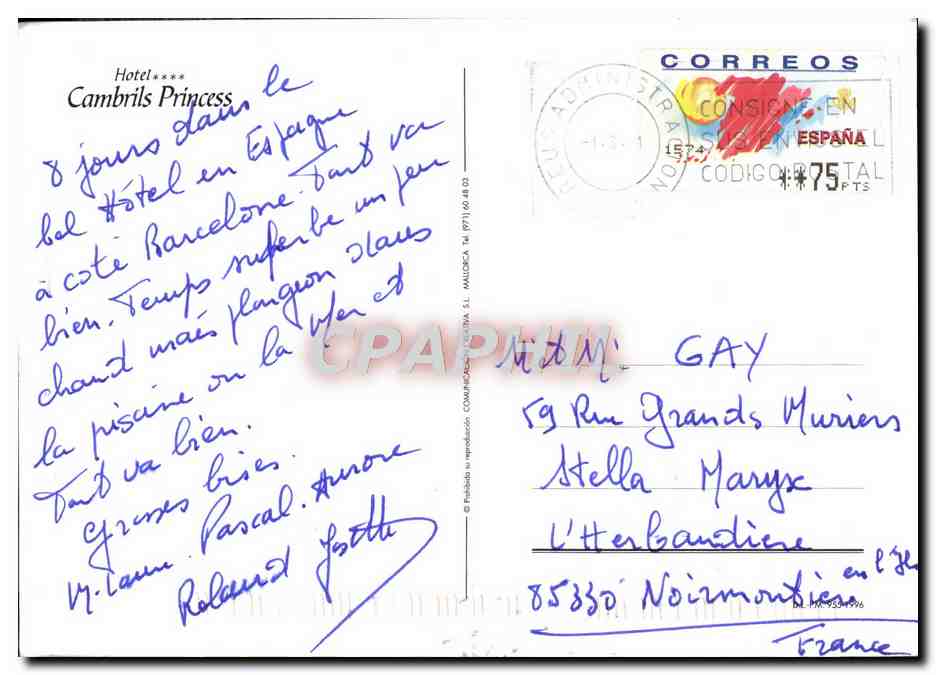 Hotel****
Cambrils Princess
8 jours dans le
bel Hôtel en Espagne
à coté Barcelone. Tout va
bien. Temps superbe un peu
chaud mais plongeon dans
la piscine ou la Mer et
Tout va bien.
Grosses bises.
Pascal. Aurore
Roland Josette
© Prohibida su reproducción COMUNICACIÓN CREATIVA S.L. MALLORCA Tel. (971) 60 48 03
CORREOS
REUS ADMINISTRACION
1574
CONSIGNE EN
SUS ENVIOS EL
CODIGO POSTAL
ESPAÑA
**75 PTS
CPAPHIL
M et Me GAY
59 Rue Grands Muriers
Stella Maryx
L'Herbaudiere
85330 Noirmoutier en l'Ile
D.L. P.M. 955-1996
France